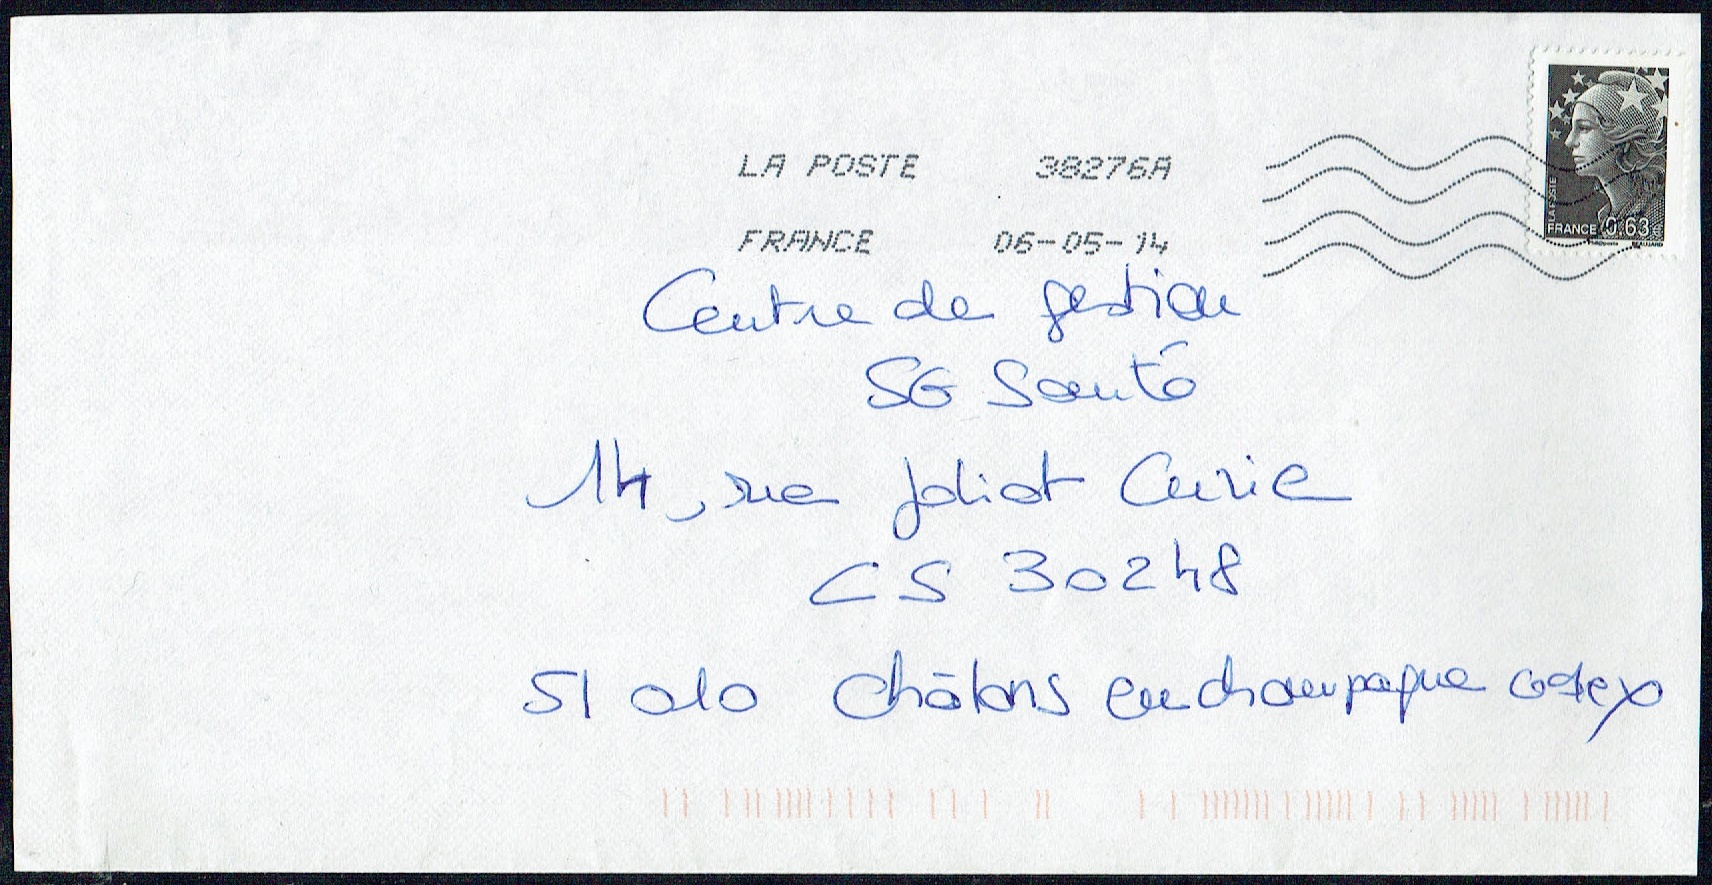 LA POSTE 38276A
FRANCE 06-05-14
LA POSTE
FRANCE 0,63€
Centre de gestion
SG Santé
14, rue Joliot Curie
CS 30248
51 010 Châlons en champagne cedex